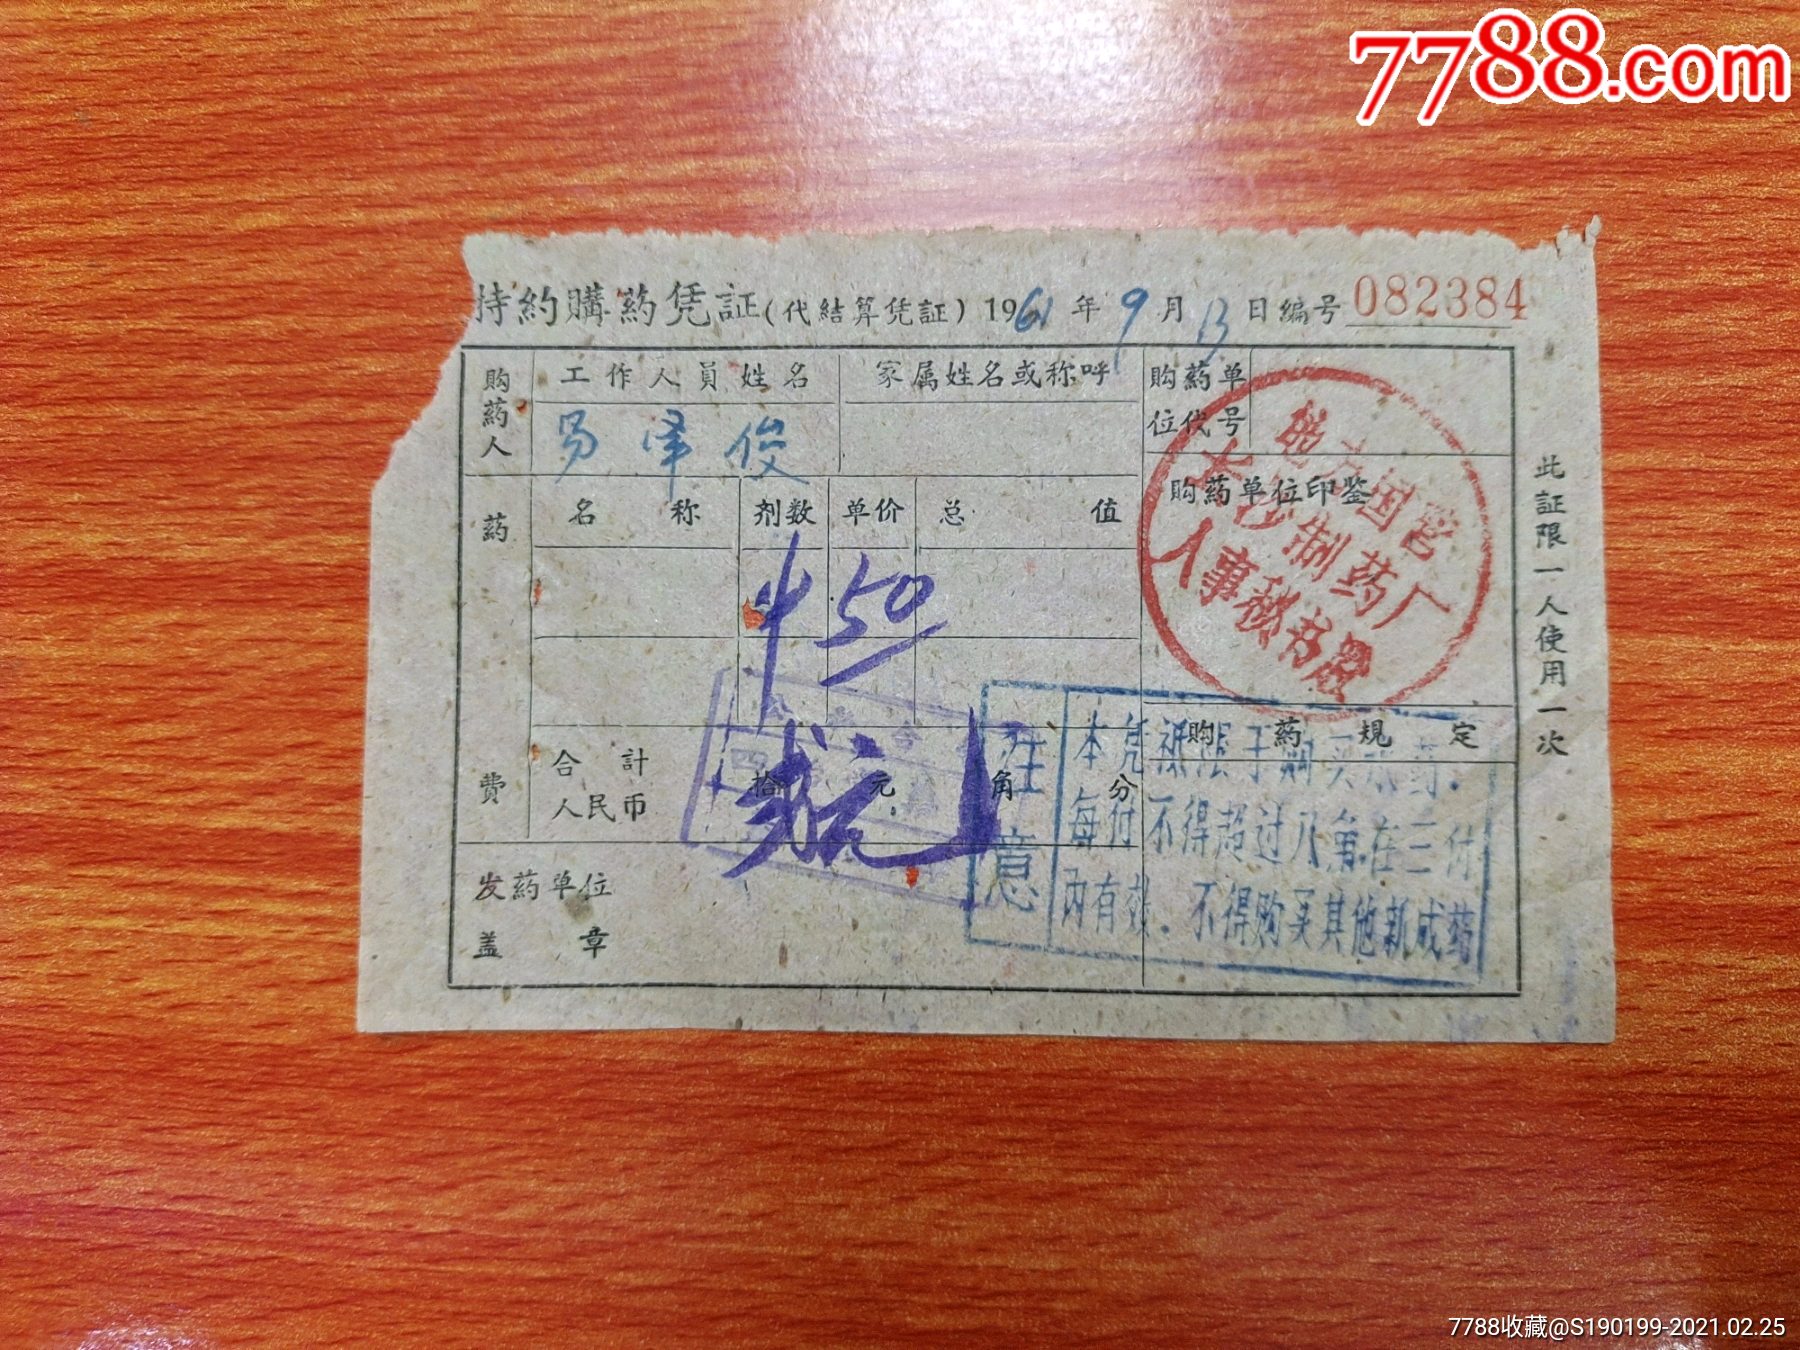 7788.com
持約購药凭証(代結算凭証) 1961年9月13日編号082384
购药人
工作人員姓名
家属姓名或称呼
购药单位代号
易泽俊
购药单位印鉴
地方国营
长沙制药厂
人事秘书股
药費
名称
剂数
单价
总值
50
合計
人民币
拾元角分
贰元
购药規定
注意
本凭証限于购买水药.
每付不得超过八角.在三付
內有效.不得购买其他新成药
发药单位
盖章
此証限一人使用一次
7788收藏@S190199-2021.02.25